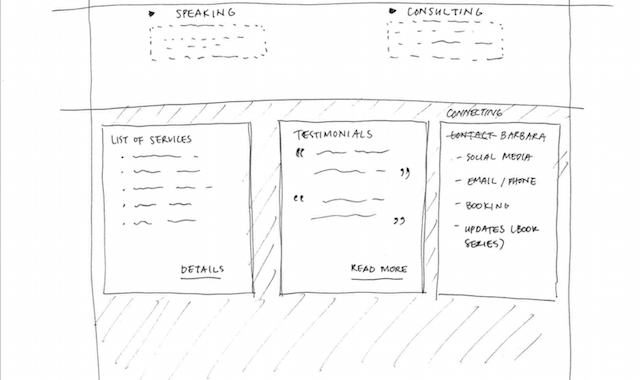 SPEAKING
CONSULTING
LIST OF SERVICES
DETAILS
TESTIMONIALS
“
”
“
”
READ MORE
CONNECTING
CONTACT BARBARA
- SOCIAL MEDIA
- EMAIL / PHONE
- BOOKING
- UPDATES (BOOK
SERIES)